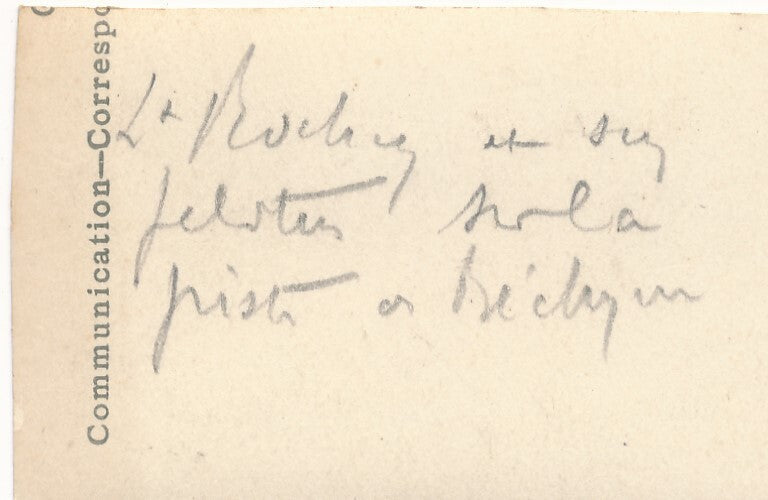 Communication—Corresp
Lt Rochey et son
peloton sur la
piste a Béchyne